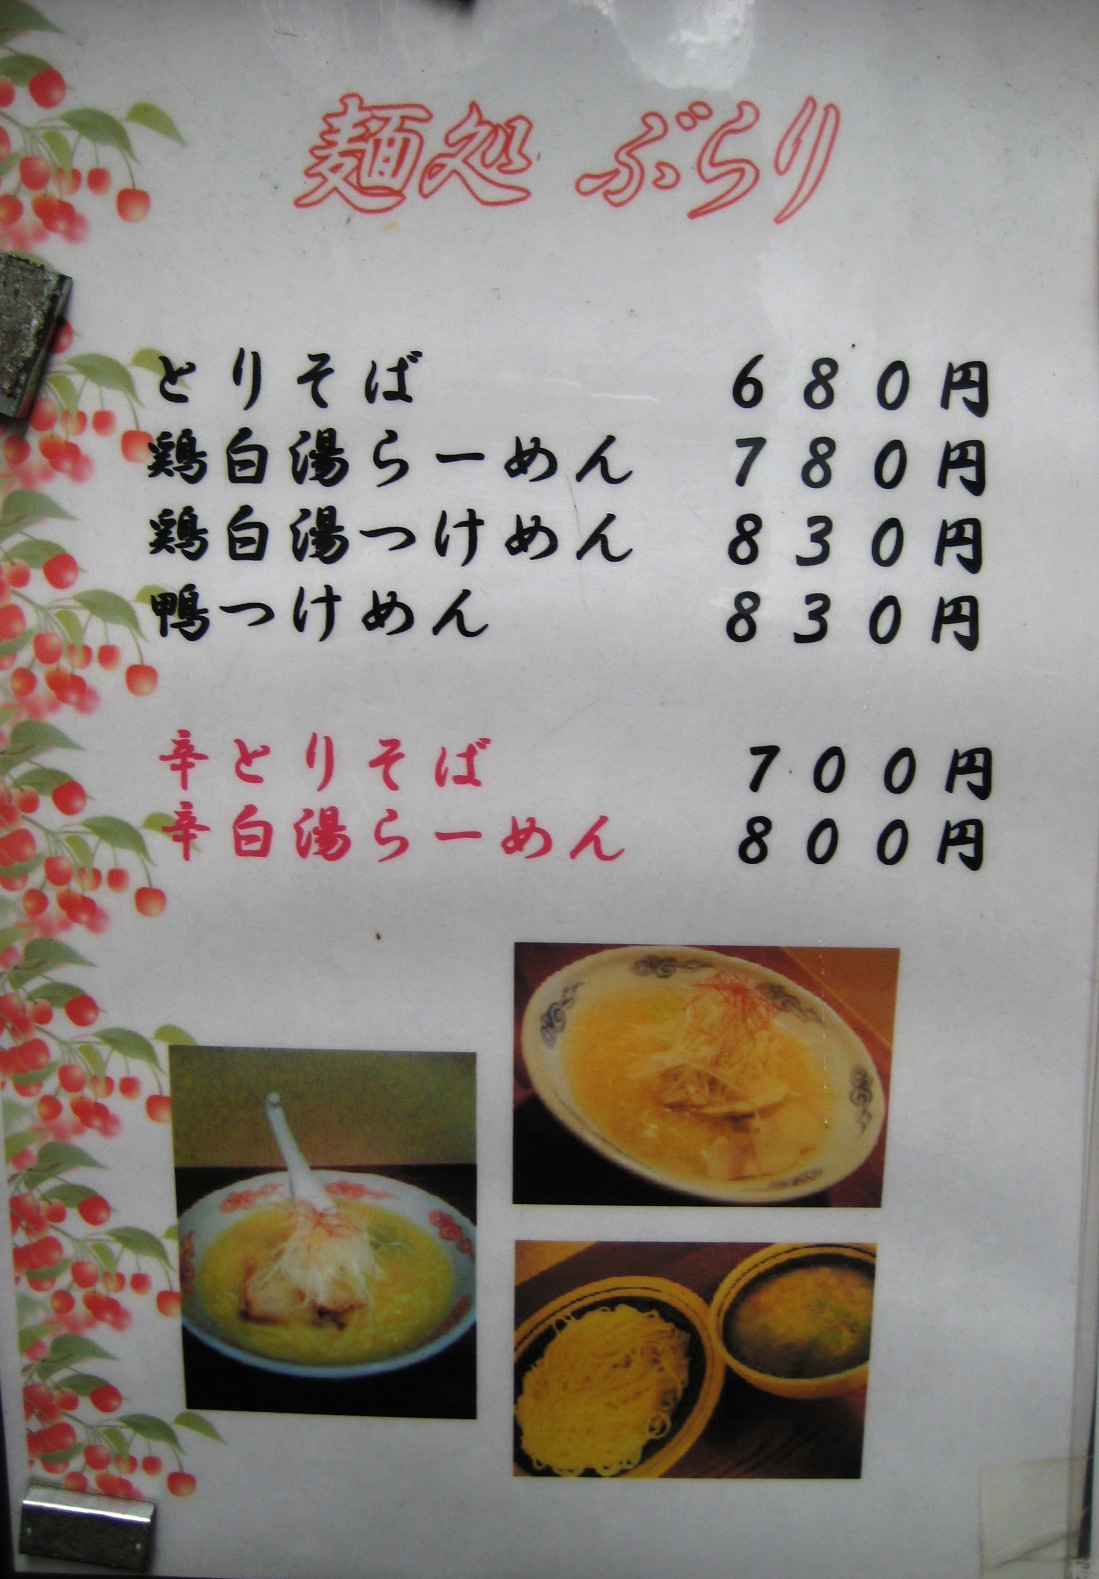 麺処 ぶらり
とりそば 680円
鶏白湯らーめん 780円
鶏白湯つけめん 830円
鴨つけめん 830円
辛とりそば 700円
辛白湯らーめん 800円